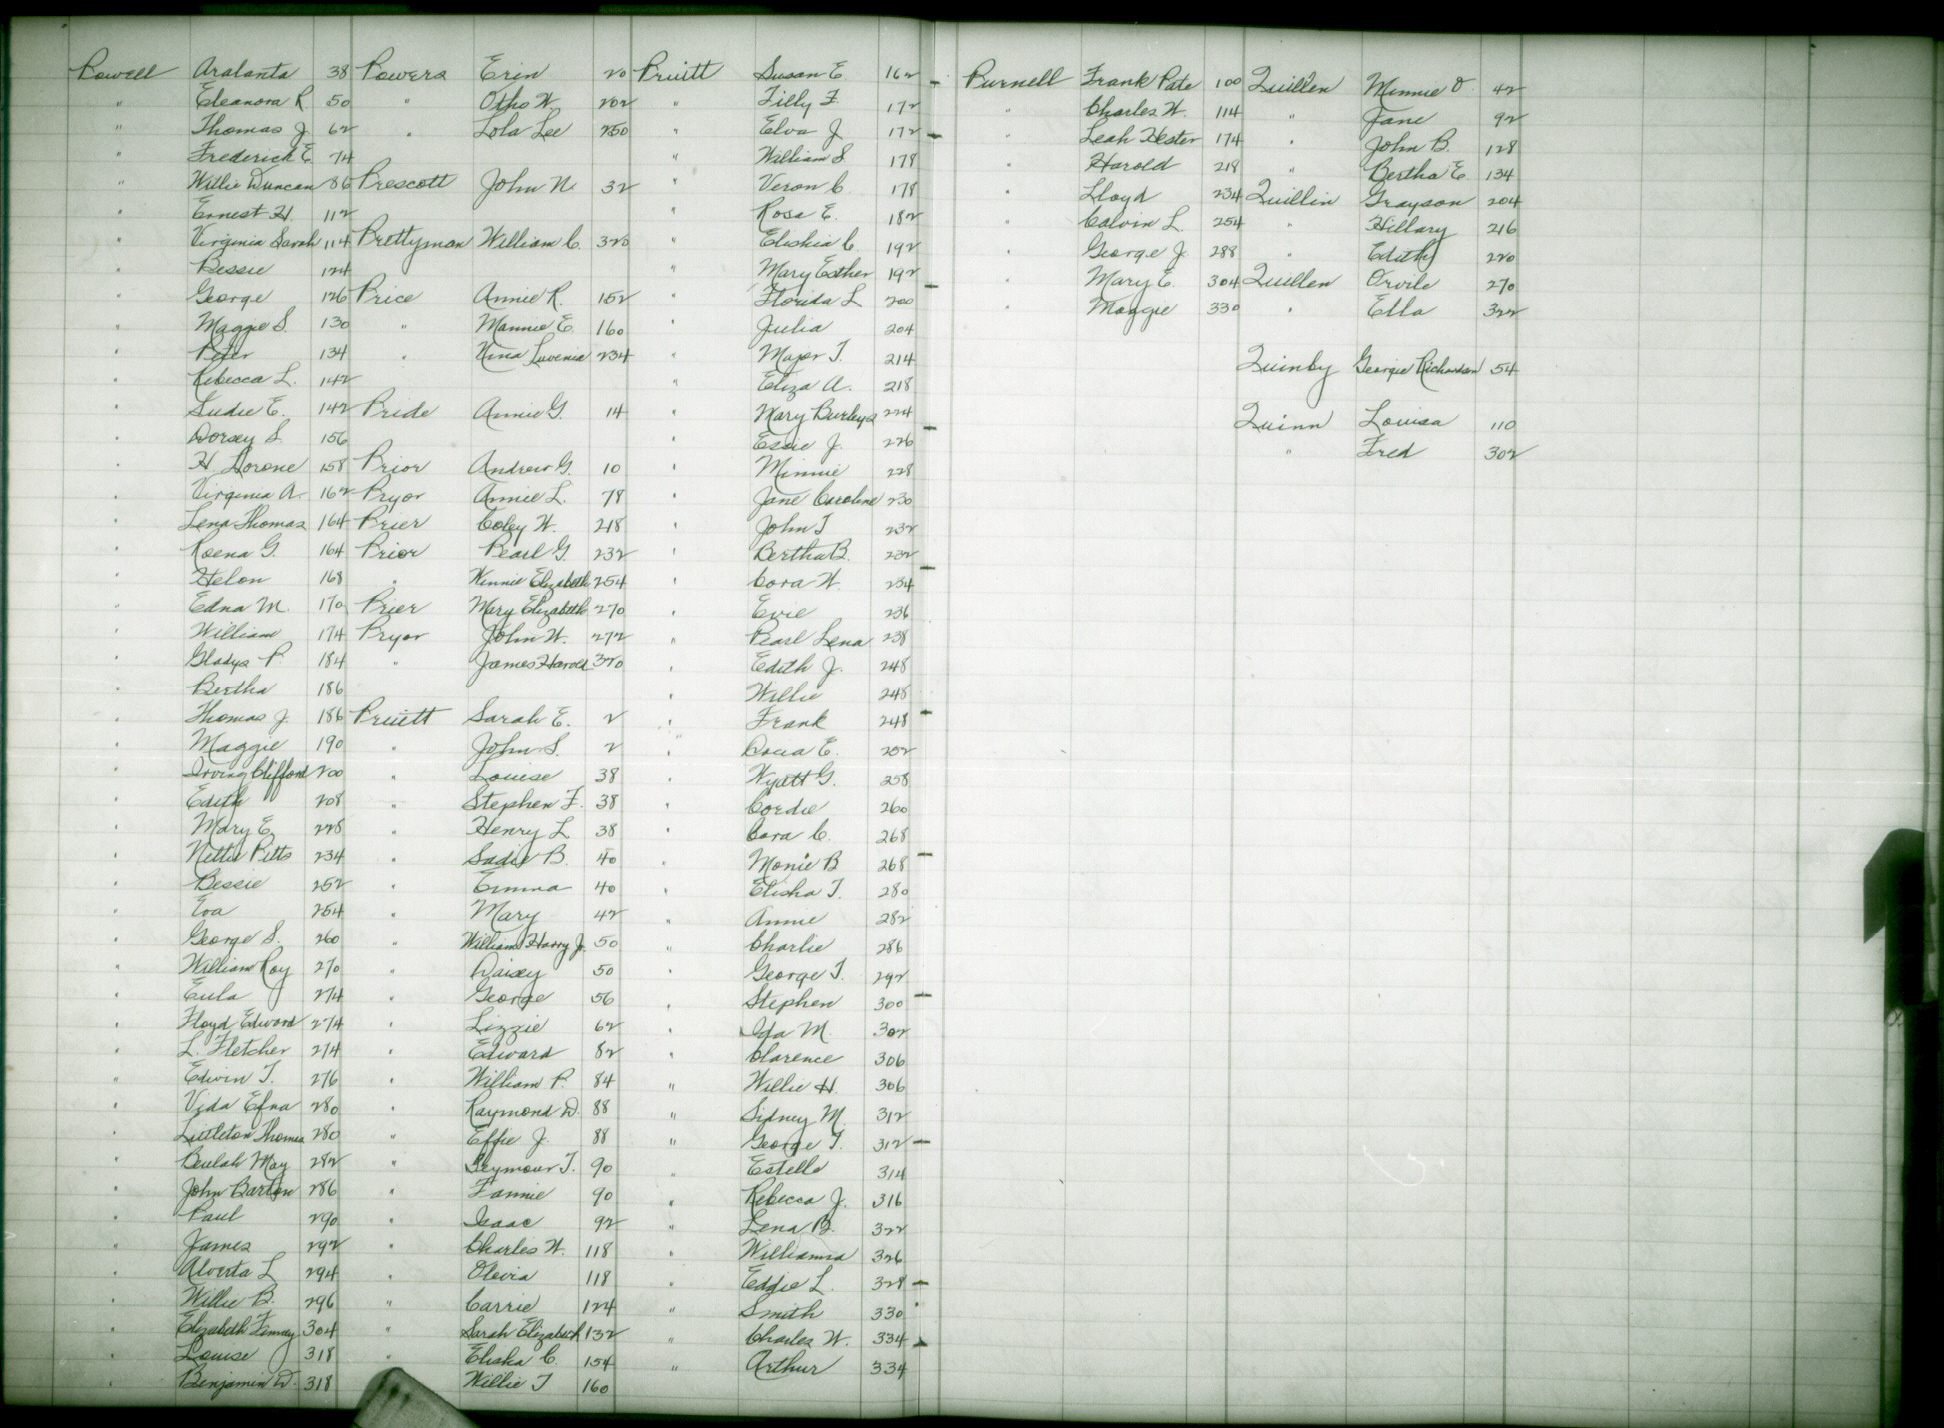 Powell Aralanta 38
" Eleanora R. 50
" Thomas J. 62
" Frederick E. 74
" Willie Duncan 86
" Ernest H. 112
" Virginia Sarah 114
" Bessie 124
" George 126
" Maggie S. 130
" Peter 134
" Rebecca L. 142
" Sudie E. 142
" Dorsey S. 156
" H. Lorone 158
" Virginia A. 162
" Lena Thomas 164
" Roena G. 164
" Helon 168
" Edna M. 170
" William 174
" Gladys P. 184
" Bertha 186
" Thomas J. 186
" Maggie 190
" Irving Clifford 200
" Edith 208
" Mary E. 228
" Nettie Pitts 234
" Bessie 252
" Eva 254
" George S. 260
" William Roy 270
" Eula 274
" Floyd Edward 274
" L. Fletcher 274
" Edwin T. 276
" Vida Efna 280
" Littleton Thomas 280
" Beulah May 282
" John Barton 286
" Paul 290
" James 292
" Alverta L 294
" Willie B. 296
" Elizabeth 304
" Louise 318
" Benjamin W. 318
Powers Erin 20
" Otho W. 202
" Lola Lee 250
Prescott John N. 32
Prettyman William C. 320
Price Annie R. 152
" Mannie E. 160
" Nina Luvenia 234
Pride Annie G. 14
Prior Andrew G. 10
Pryor Annie L. 78
Prier Coley W. 218
Prior Pearl G. 232
" Winnie Elizabeth 254
Prier Mary Elizabeth 270
Pryor John W. 272
" James Harold 320
Pruitt Sarah E. 2
" John S. 2
" Louise 38
" Stephen F. 38
" Henry L 38
" Sadie B. 40
" Emma 40
" Mary 42
" William Harry Jr. 50
" Daisey 50
" George 56
" Lizzie 62
" Edward 82
" William P. 84
" Raymond D. 88
" Effie J. 88
" Seymour T. 90
" Fannie 90
" Isaac 92
" Charles W. 118
" Olevia 118
" Carrie 124
" Sarah Elizabeth 132
" Elisha C. 154
" Willie T 160
Pruitt Susan E 162
" Tilly F. 172
" Elva J. 172
" William S 178
" Veron C. 178
" Rosa E. 182
" Elishia C. 192
" Mary Esther 192
" Florida L 200
" Julia 204
" Major T. 214
" Eliza A. 218
" Mary Burleys 224
" Essie J. 226
" Minnie 228
" Jane Caroline 230
" John T 232
" Bertha B. 232
" Cora W. 234
" Evie 236
" Pearl Lena 238
" Edith J. 248
" Willie 248
" Frank 248
" Docia E. 252
" Wyatt G. 258
" Cordie 260
" Cora C. 268
" Monie B 268
" Elisha T. 280
" Annie 282
" Charlie 286
" George T. 292
" Stephen 300
" Ida M. 302
" Clarence 306
" Willie H. 306
" Sidney M. 312
" George T. 312
" Estelle 314
" Rebecca J. 316
" Lena B. 322
" Williamia 326
" Eddie L. 328
" Smith 330
" Charles W. 334
" Arthur 334
Purnell Frank Pate 100
" Charles W. 114
" Leah Hester 174
" Harold 218
" Lloyd 234
" Calvin L. 254
" George J. 288
" Mary E. 304
" Maggie 330
Quillen Minnie O 42
" Jane 92
" John B. 128
" Bertha E. 134
Quillin Grayson 204
" Hillary 216
" Edith 220
Quillen Orvile 270
" Ella 322
Quinby Georgie Richardson 54
Quinn Louisa 110
" Fred 302